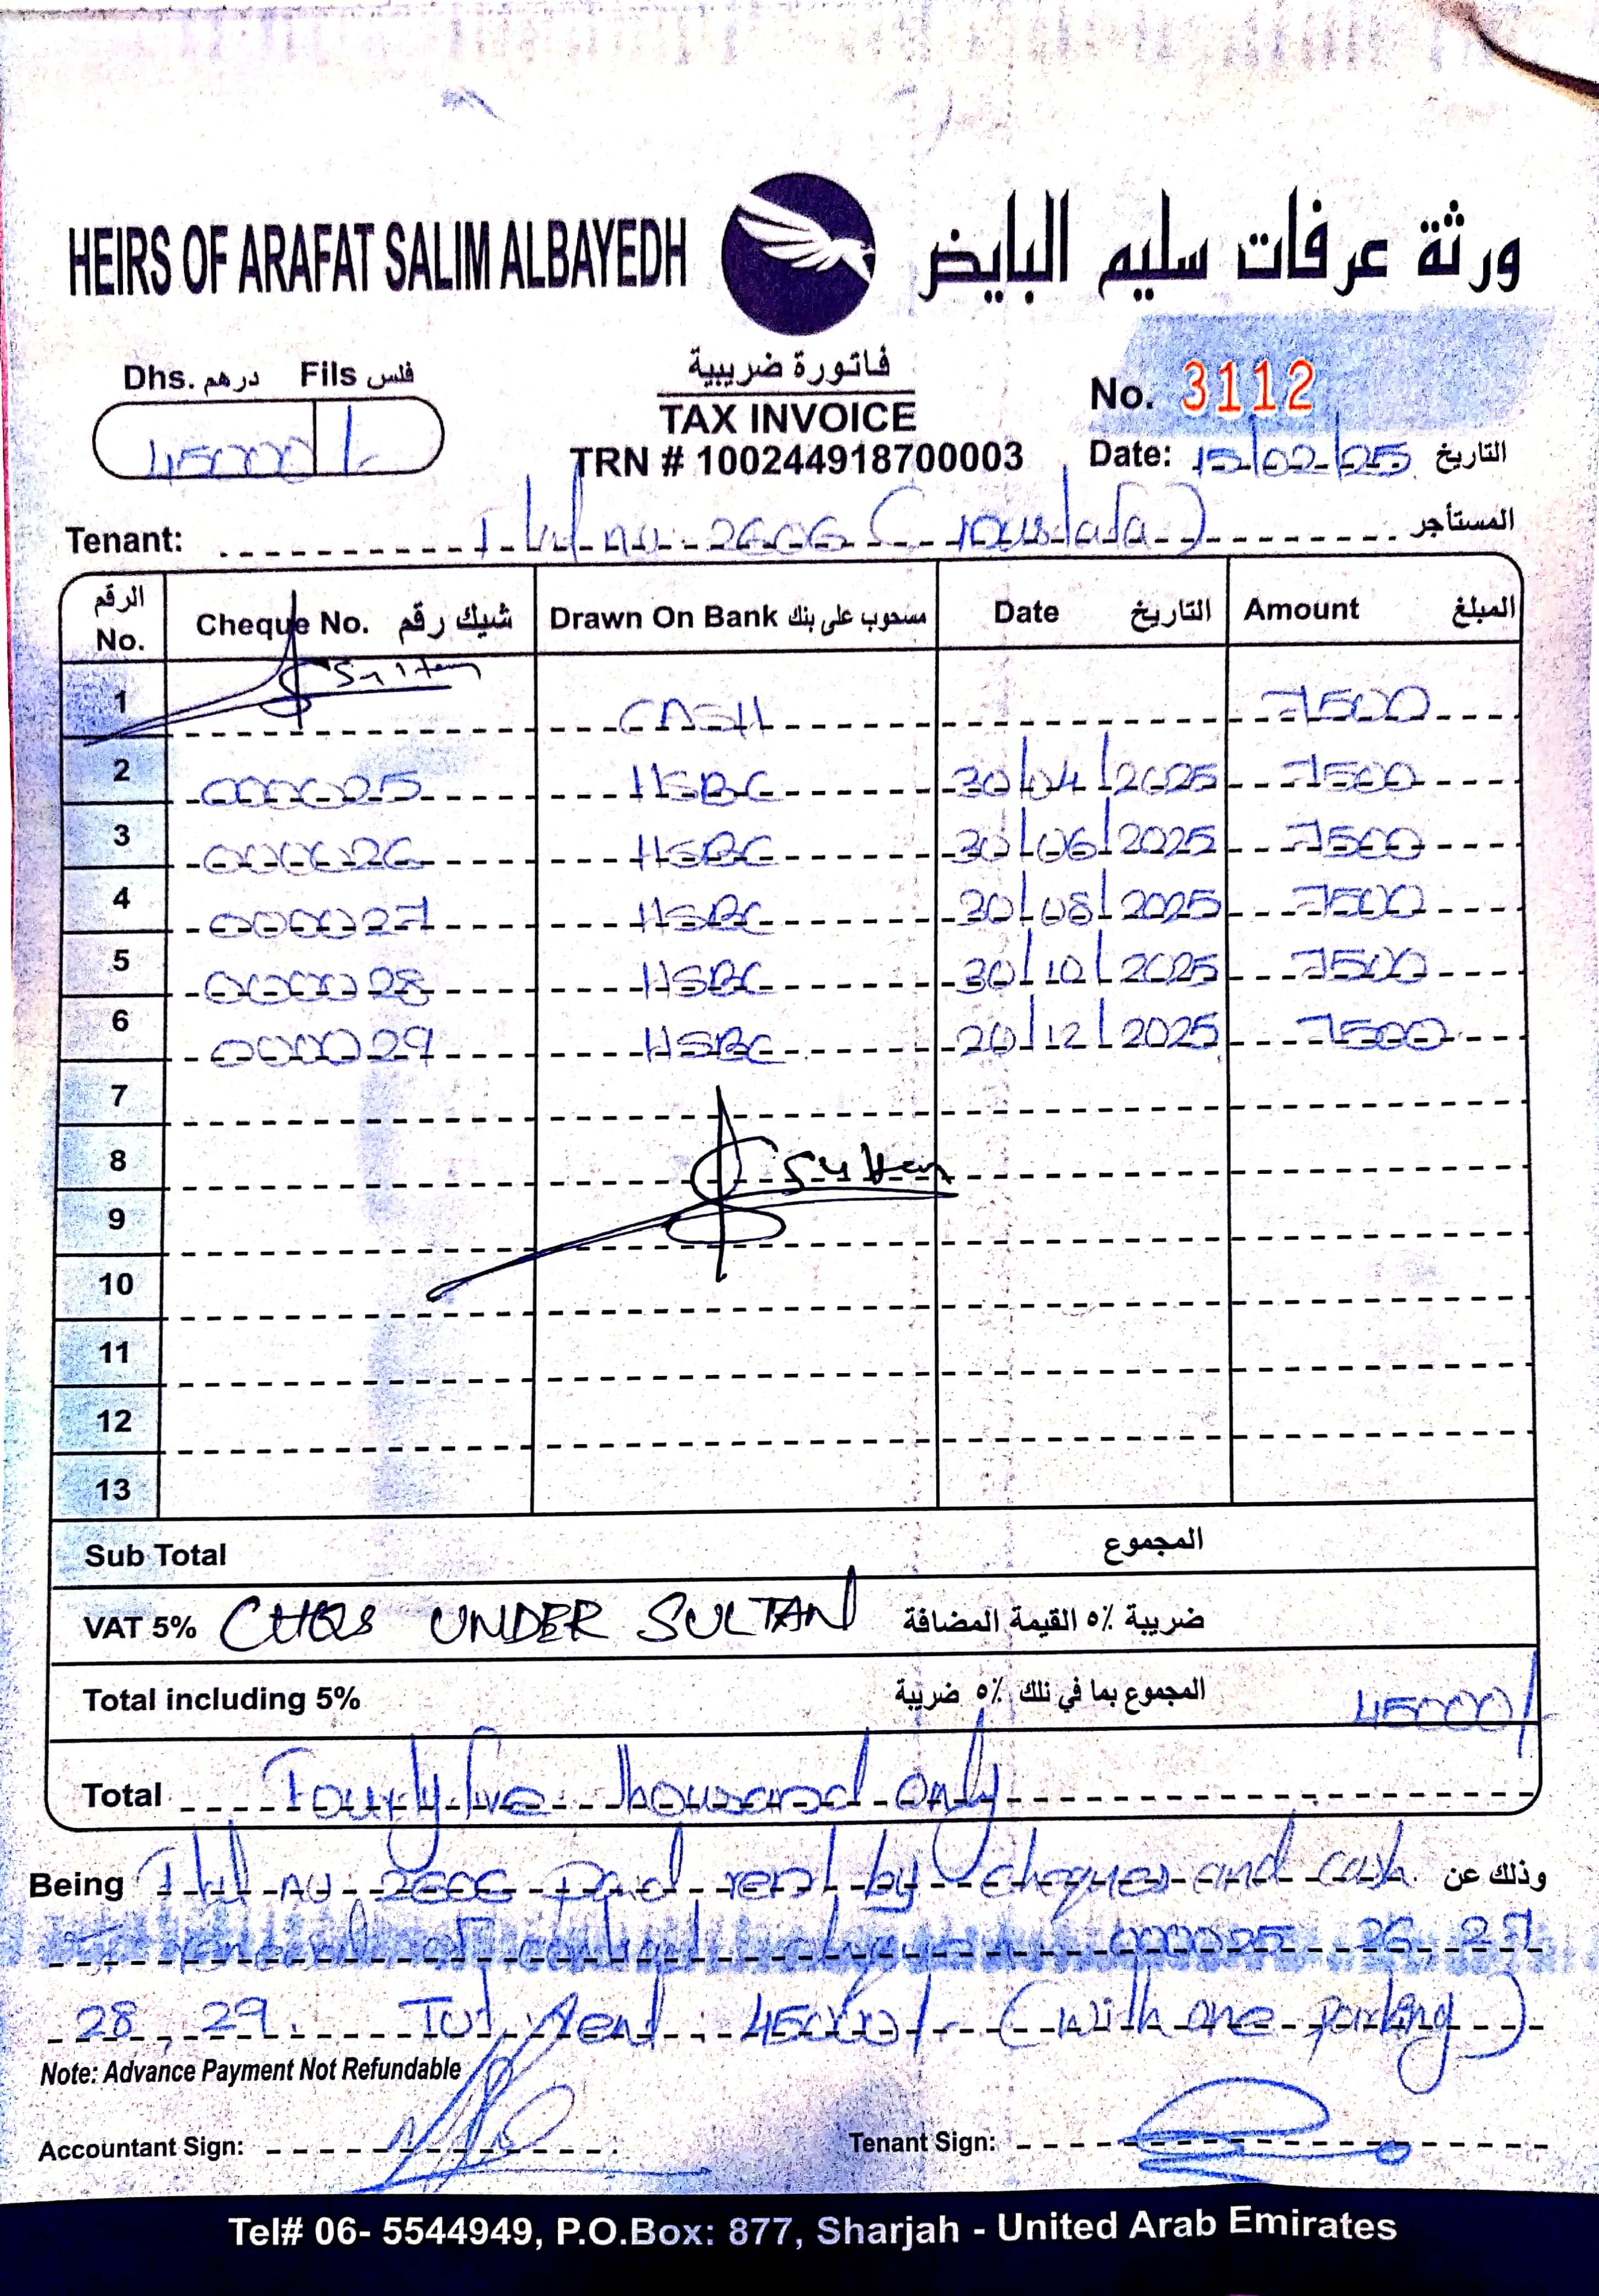 HEIRS OF ARAFAT SALIM ALBAYEDH ورثة عرفات سليم البايض
Dhs. درهم Fils فلس
45000 /-
فاتورة ضريبية
TAX INVOICE
TRN # 100244918700003
No. 3112
Date: 15/02/25 التاريخ
Tenant: no. 2606 المستأجر
الرقم No. Cheque No. شيك رقم Drawn On Bank مسحوب على بنك Date التاريخ Amount المبلغ
1 Sultan CASH 7500
2 000025 HSBC 30/04/2025 7500
3 000026 HSBC 30/06/2025 7500
4 000027 HSBC 30/08/2025 7500
5 000028 HSBC 30/10/2025 7500
6 000029 HSBC 20/12/2025 7500
7
8 Sultan
9
10
11
12
13
Sub Total المجموع
VAT 5% CHQS UNDER SULTAN ضريبة ٥٪ القيمة المضافة
Total including 5% المجموع بما في ذلك ٥٪ ضريبة 45000/-
Total Fourty five thousand only
Being no. 2606 paid rent by cheques and cash وذلك عن
renewal of contract 000025 26, 27
28, 29. Tot Rent: 45000/- (with one parking)
Note: Advance Payment Not Refundable
Accountant Sign: Tenant Sign:
Tel# 06- 5544949, P.O.Box: 877, Sharjah - United Arab Emirates